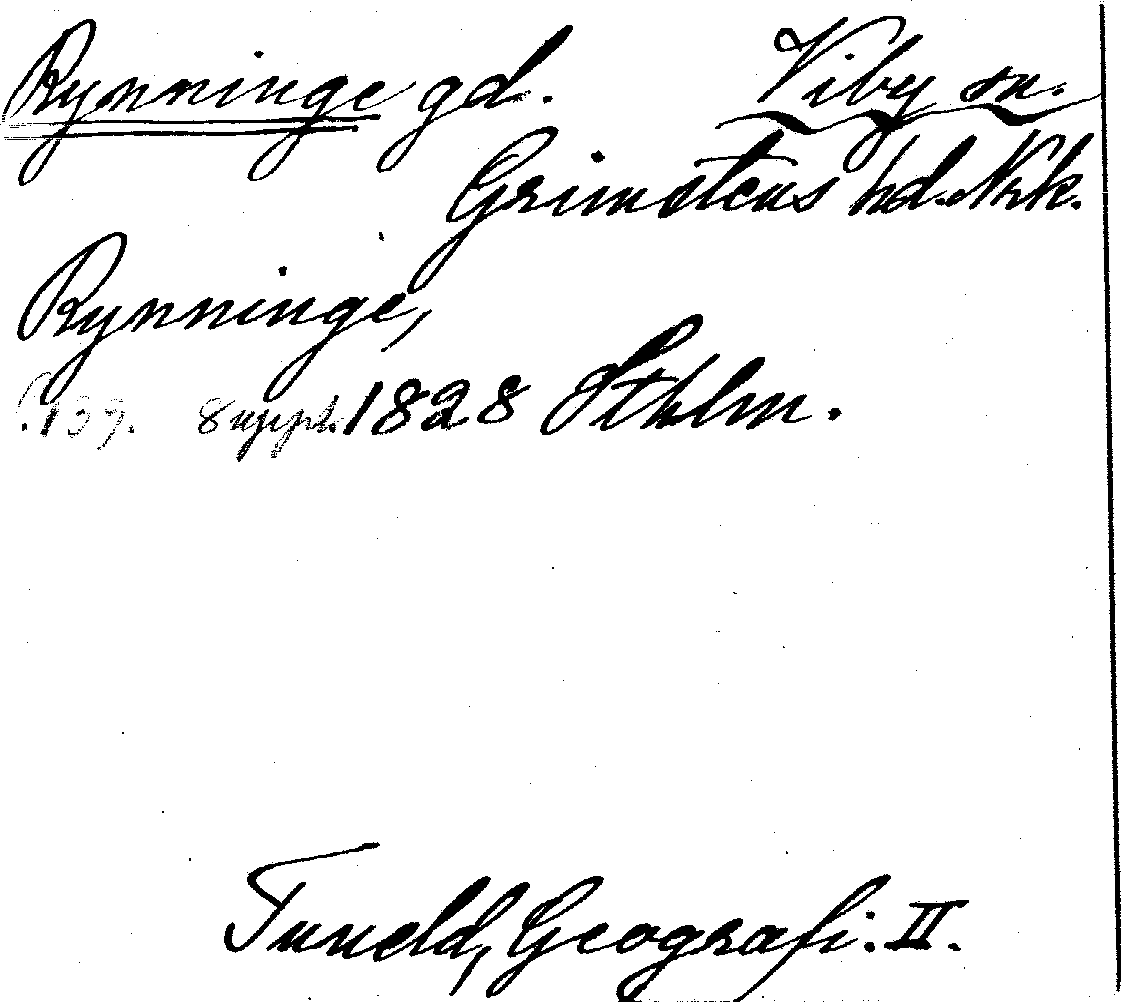 Rynninge gd. Viby sn.
Grimstens hd. Nrk.
Rynninge,
s. 139. 8 uppl. 1828 Sthlm.
Tuneld, Geografi. II.